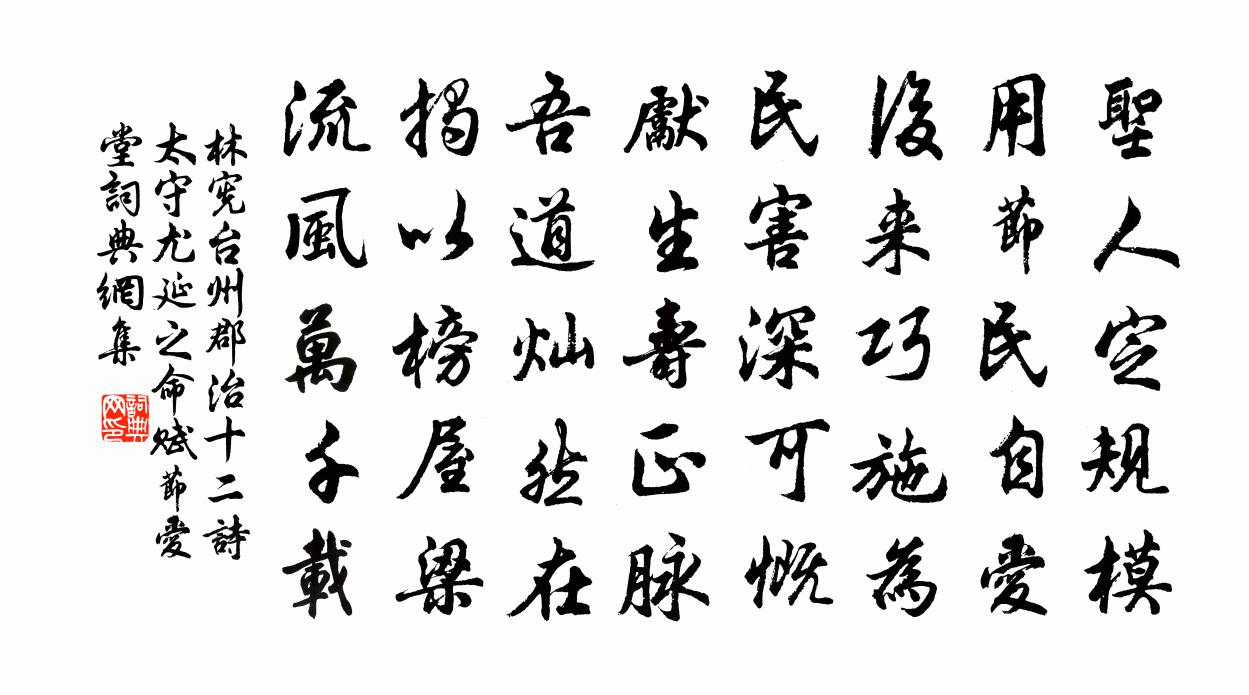 聖人定規模
用節民自愛
後来巧施為
民害深可慨
獻生壽正脉
吾道灿然在
揭以榜屋梁
流風萬千載
林宪台州郡治十二詩
太守尤延之命賦節愛
堂詞典網集
詞典网印